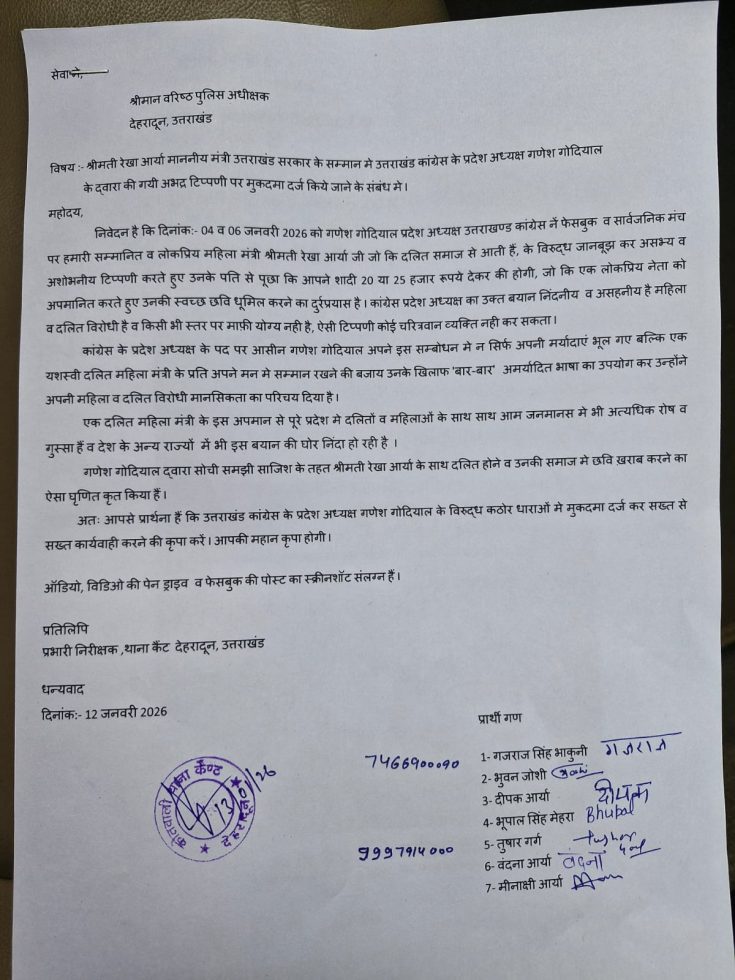 सेवामे,
श्रीमान वरिष्ठ पुलिस अधीक्षक
देहरादून, उत्तराखंड
विषय :- श्रीमती रेखा आर्या माननीय मंत्री उत्तराखंड सरकार के सम्मान मे उत्तराखंड कांग्रेस के प्रदेश अध्यक्ष गणेश गोदियाल
के द्वारा की गयी अभद्र टिप्पणी पर मुकदमा दर्ज किये जाने के संबंध मे।
महोदय,
निवेदन है कि दिनांक:- 04 व 06 जनवरी 2026 को गणेश गोदियाल प्रदेश अध्यक्ष उत्तराखण्ड कांग्रेस नें फेसबुक व सार्वजनिक मंच
पर हमारी सम्मानित व लोकप्रिय महिला मंत्री श्रीमती रेखा आर्या जी जो कि दलित समाज से आती हैं, के विरुद्ध जानबूझ कर असभ्य व
अशोभनीय टिप्पणी करते हुए उनके पति से पूछा कि आपने शादी 20 या 25 हजार रूपये देकर की होगी, जो कि एक लोकप्रिय नेता को
अपमानित करते हुए उनकी स्वच्छ छवि धूमिल करने का दुर्रप्रयास है। कांग्रेस प्रदेश अध्यक्ष का उक्त बयान निंदनीय व असहनीय है महिला
व दलित विरोधी है व किसी भी स्तर पर माफ़ी योग्य नही है, ऐसी टिप्पणी कोई चरित्रवान व्यक्ति नही कर सकता।
कांग्रेस के प्रदेश अध्यक्ष के पद पर आसीन गणेश गोदियाल अपने इस सम्बोधन मे न सिर्फ अपनी मर्यादाएं भूल गए बल्कि एक
यशस्वी दलित महिला मंत्री के प्रति अपने मन मे सम्मान रखने की बजाय उनके खिलाफ 'बार-बार' अमर्यादित भाषा का उपयोग कर उन्होंने
अपनी महिला व दलित विरोधी मानसिकता का परिचय दिया है।
एक दलित महिला मंत्री के इस अपमान से पूरे प्रदेश मे दलितों व महिलाओं के साथ साथ आम जनमानस मे भी अत्यधिक रोष व
गुस्सा हैं व देश के अन्य राज्यों में भी इस बयान की घोर निंदा हो रही है ।
गणेश गोदियाल द्वारा सोची समझी साजिश के तहत श्रीमती रेखा आर्या के साथ दलित होने व उनकी समाज मे छवि ख़राब करने का
ऐसा घृणित कृत किया हैं।
अतः आपसे प्रार्थना हैं कि उत्तराखंड कांग्रेस के प्रदेश अध्यक्ष गणेश गोदियाल के विरुद्ध कठोर धाराओं मे मुकदमा दर्ज कर सख्त से
सख्त कार्यवाही करने की कृपा करें। आपकी महान कृपा होगी।
ऑडियो, विडिओ की पेन ड्राइव व फेसबुक की पोस्ट का स्क्रीनशॉट संलग्न हैं।
प्रतिलिपि
प्रभारी निरीक्षक ,थाना कैंट देहरादून, उत्तराखंड
धन्यवाद
दिनांक:- 12 जनवरी 2026
प्रार्थी गण
7466900090
1- गजराज सिंह भाकुनी गजराज
2- भुवन जोशी
3- दीपक आर्या दीपक
4- भूपाल सिंह मेहरा Bhupal
9997914000
5- तुषार गर्ग Tushar Garg
6- वंदना आर्या वंदना
7- मीनाक्षी आर्या
कोतवाली थाना कैण्ट
देहरादून
13/01/26